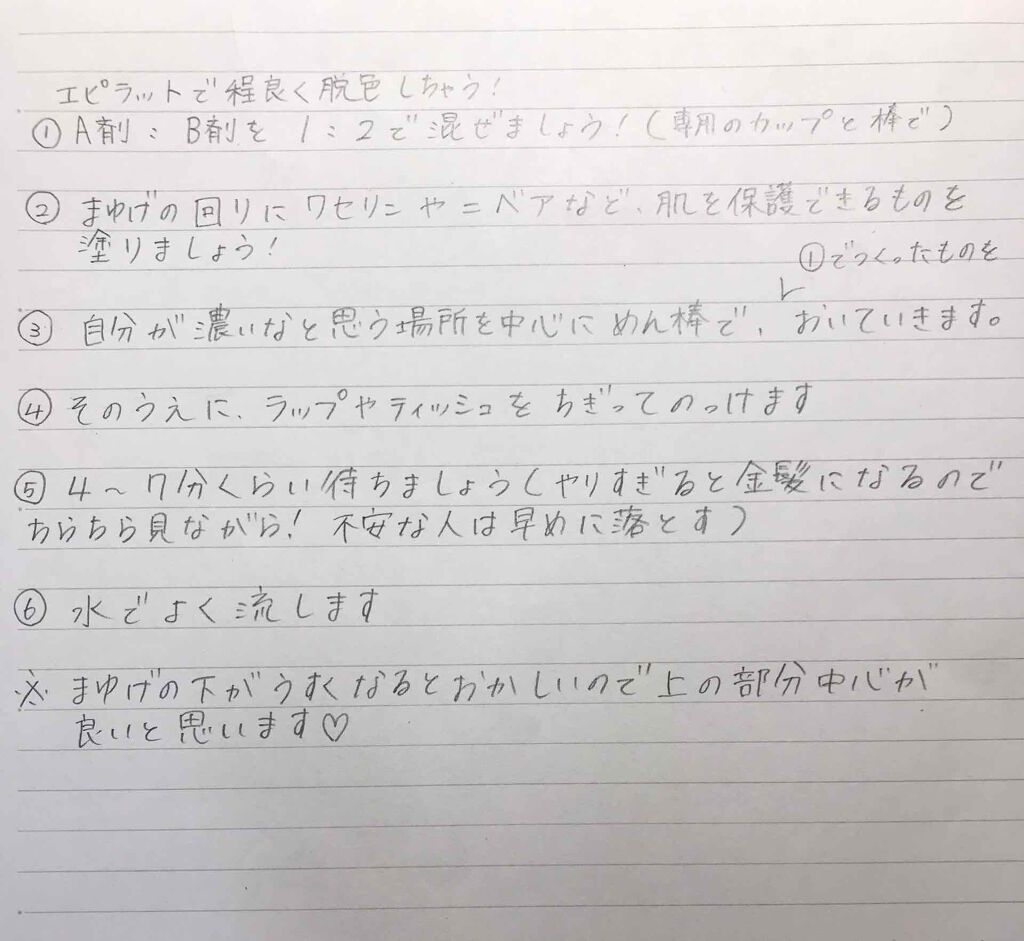 エピラットで程良く脱色しちゃう!
① A剤:B剤を 1:2で混ぜましょう!(専用のカップと棒で)
② まゆげの回りにワセリンやニベアなど、肌を保護できるものを
塗りましょう!
①でつくったものを
③ 自分が濃いなと思う場所を中心にめん棒で、おいていきます。
④ そのうえに、ラップやティッシュをちぎってのっけます
⑤ 4~7分くらい待ちましょう(やりすぎると金髪になるので
ちらちら見ながら!不安な人は早めに落とす)
⑥ 水でよく流します
※ まゆげの下がうすくなるとおかしいので上の部分中心が
良いと思います♡